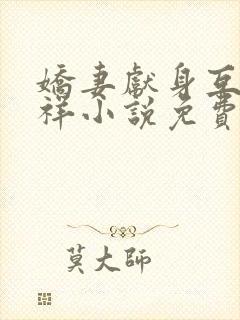 嬌妻獻身互
祥小說免費
莫大師